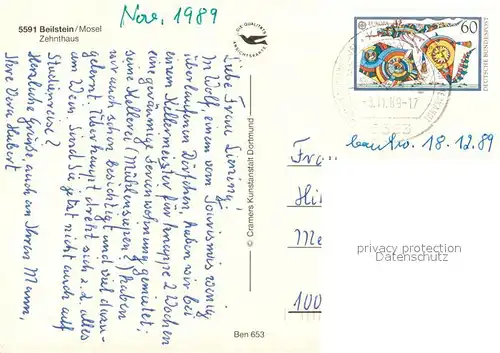 5591 Beilstein/Mosel
Zehnthaus
Nov. 1989
DIE QUALITÄTS
ANSICHTSKARTE
Liebe Frau
In Wolf, einem vom Tourismus wenig
überlaufenen Dörfchen, haben wir bei
einem Kellermeister für knappe 2 Wochen
eine geräumige Ferienwohnung gemietet;
seine Kellerei (Mühlensiepen?) haben
wir auch schon besichtigt und viel dazu-
gelernt. Überhaupt dreht sich z.Z. alles
um Wein. Sind Sie jetzt nicht auch auf
Studienreise?
Herzliche Grüße, auch an Ihren Mann,
Ihre Vera Hubert
© Cramers Kunstanstalt Dortmund
Ben 653
EUROPA
60
DEUTSCHE BUNDESPOST
11.89-17
18.12.89
Fr
Hi
Me
100
privacy protection
Datenschutz